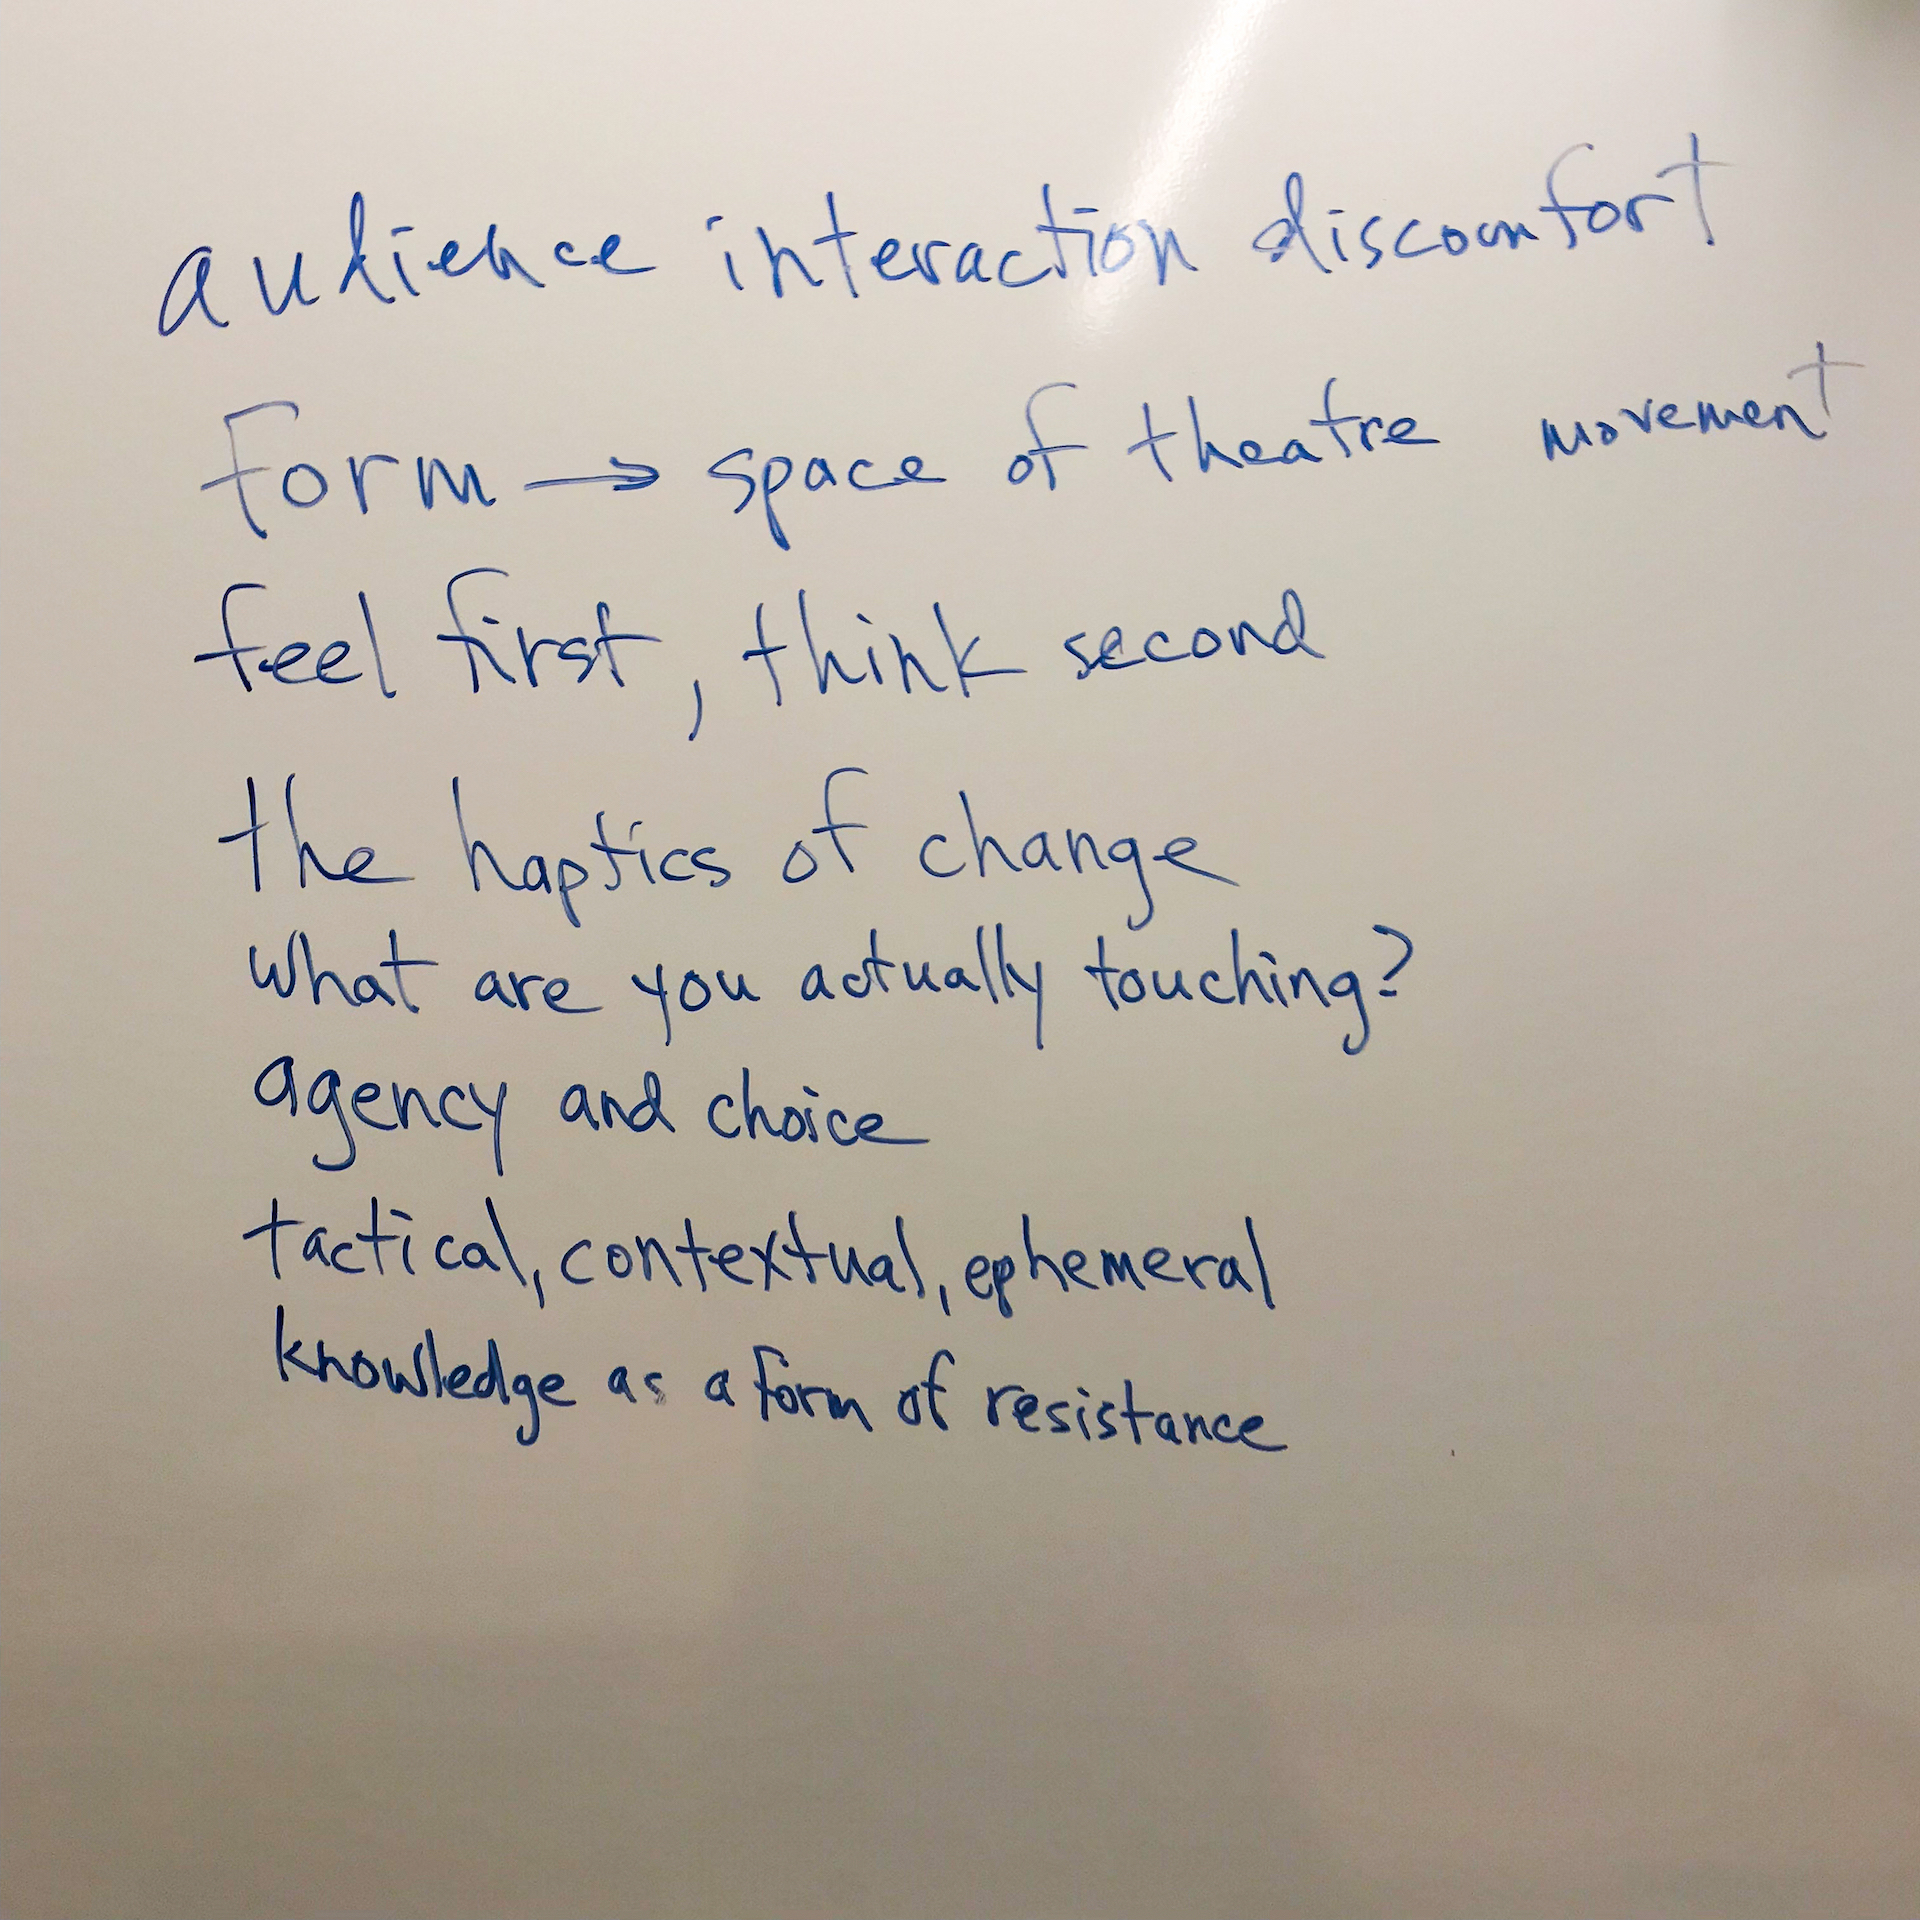 audience interaction discomfort
form → space of theatre movement
feel first, think second
the haptics of change
what are you actually touching?
agency and choice
tactical, contextual, ephemeral
knowledge as a form of resistance